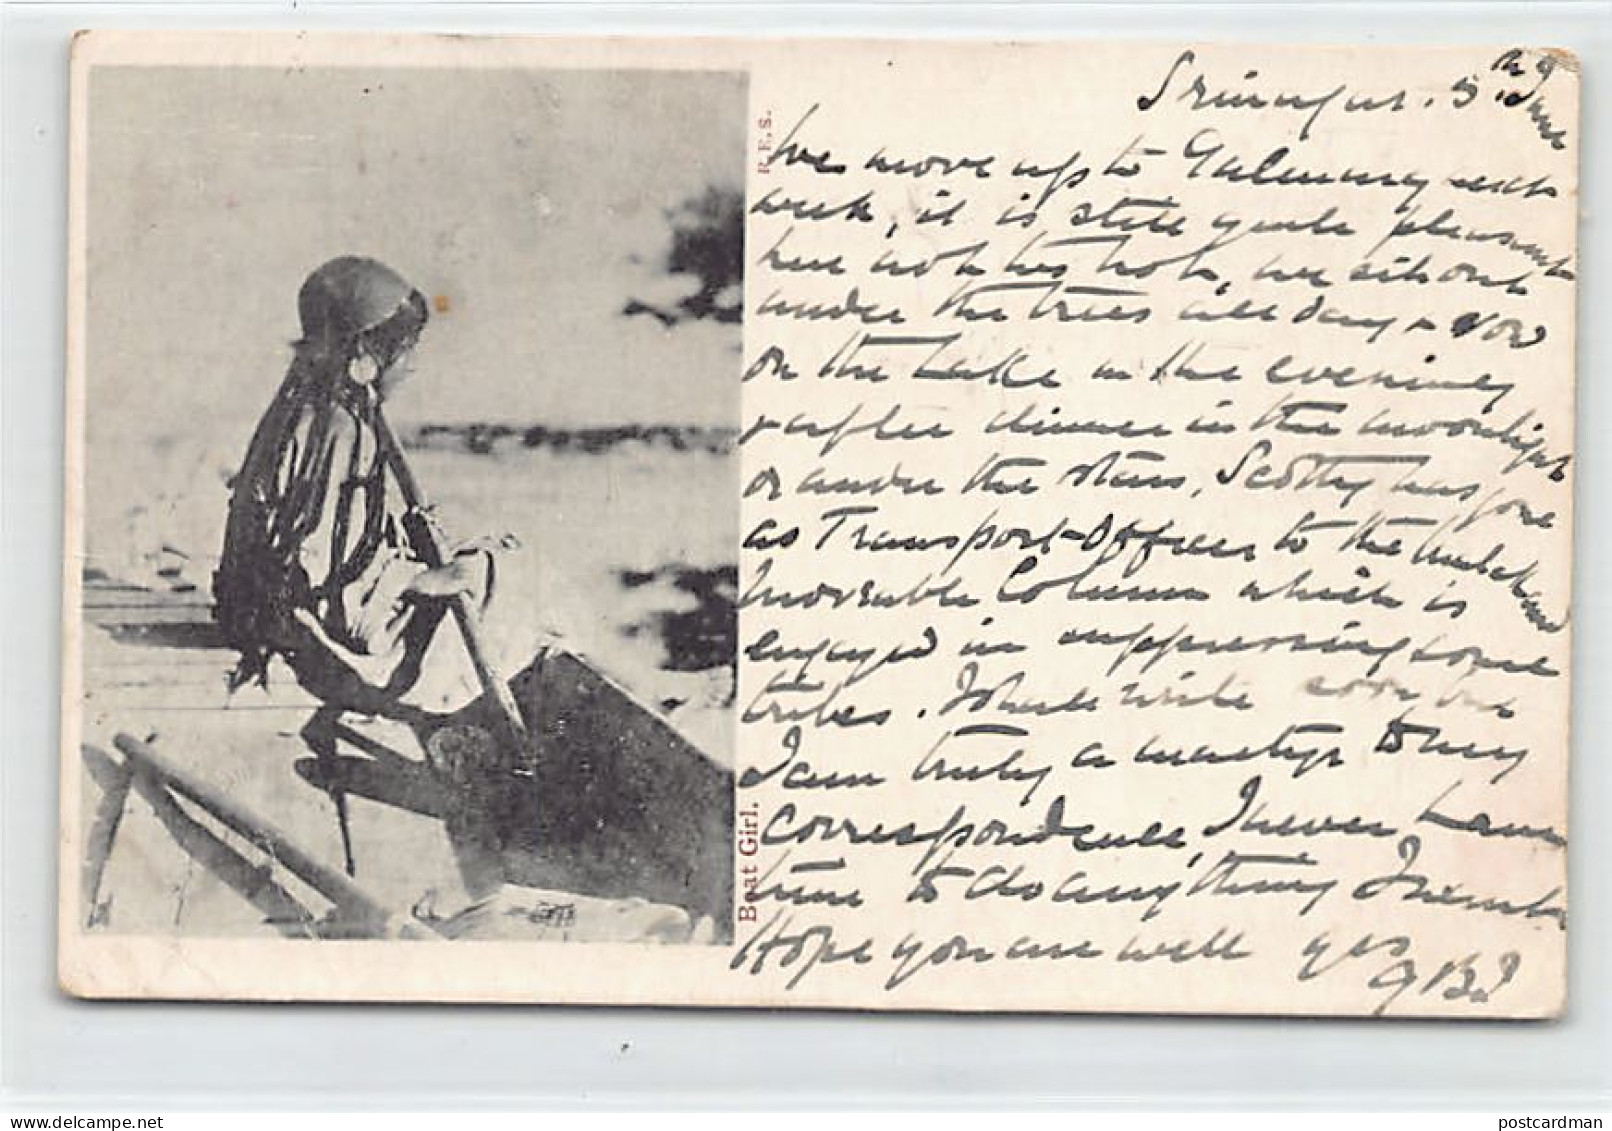 Srinagar. 5th June
We move up to Gulmurg next
week, it is still quite pleasant
here not too hot, we sit out
under the trees all day & row
on the Lake in the evening
& after dinner in the moonlight
or under the stars. Scotty has gone
as Transport-Officer to the
Moveable Column which is
engaged in suppressing some
tribes. I shall write soon but
I am truly a martyr to my
correspondence, I never have
time to do anything I
Hope you are well yrs
R.E.S.
Boat Girl.
postcardman